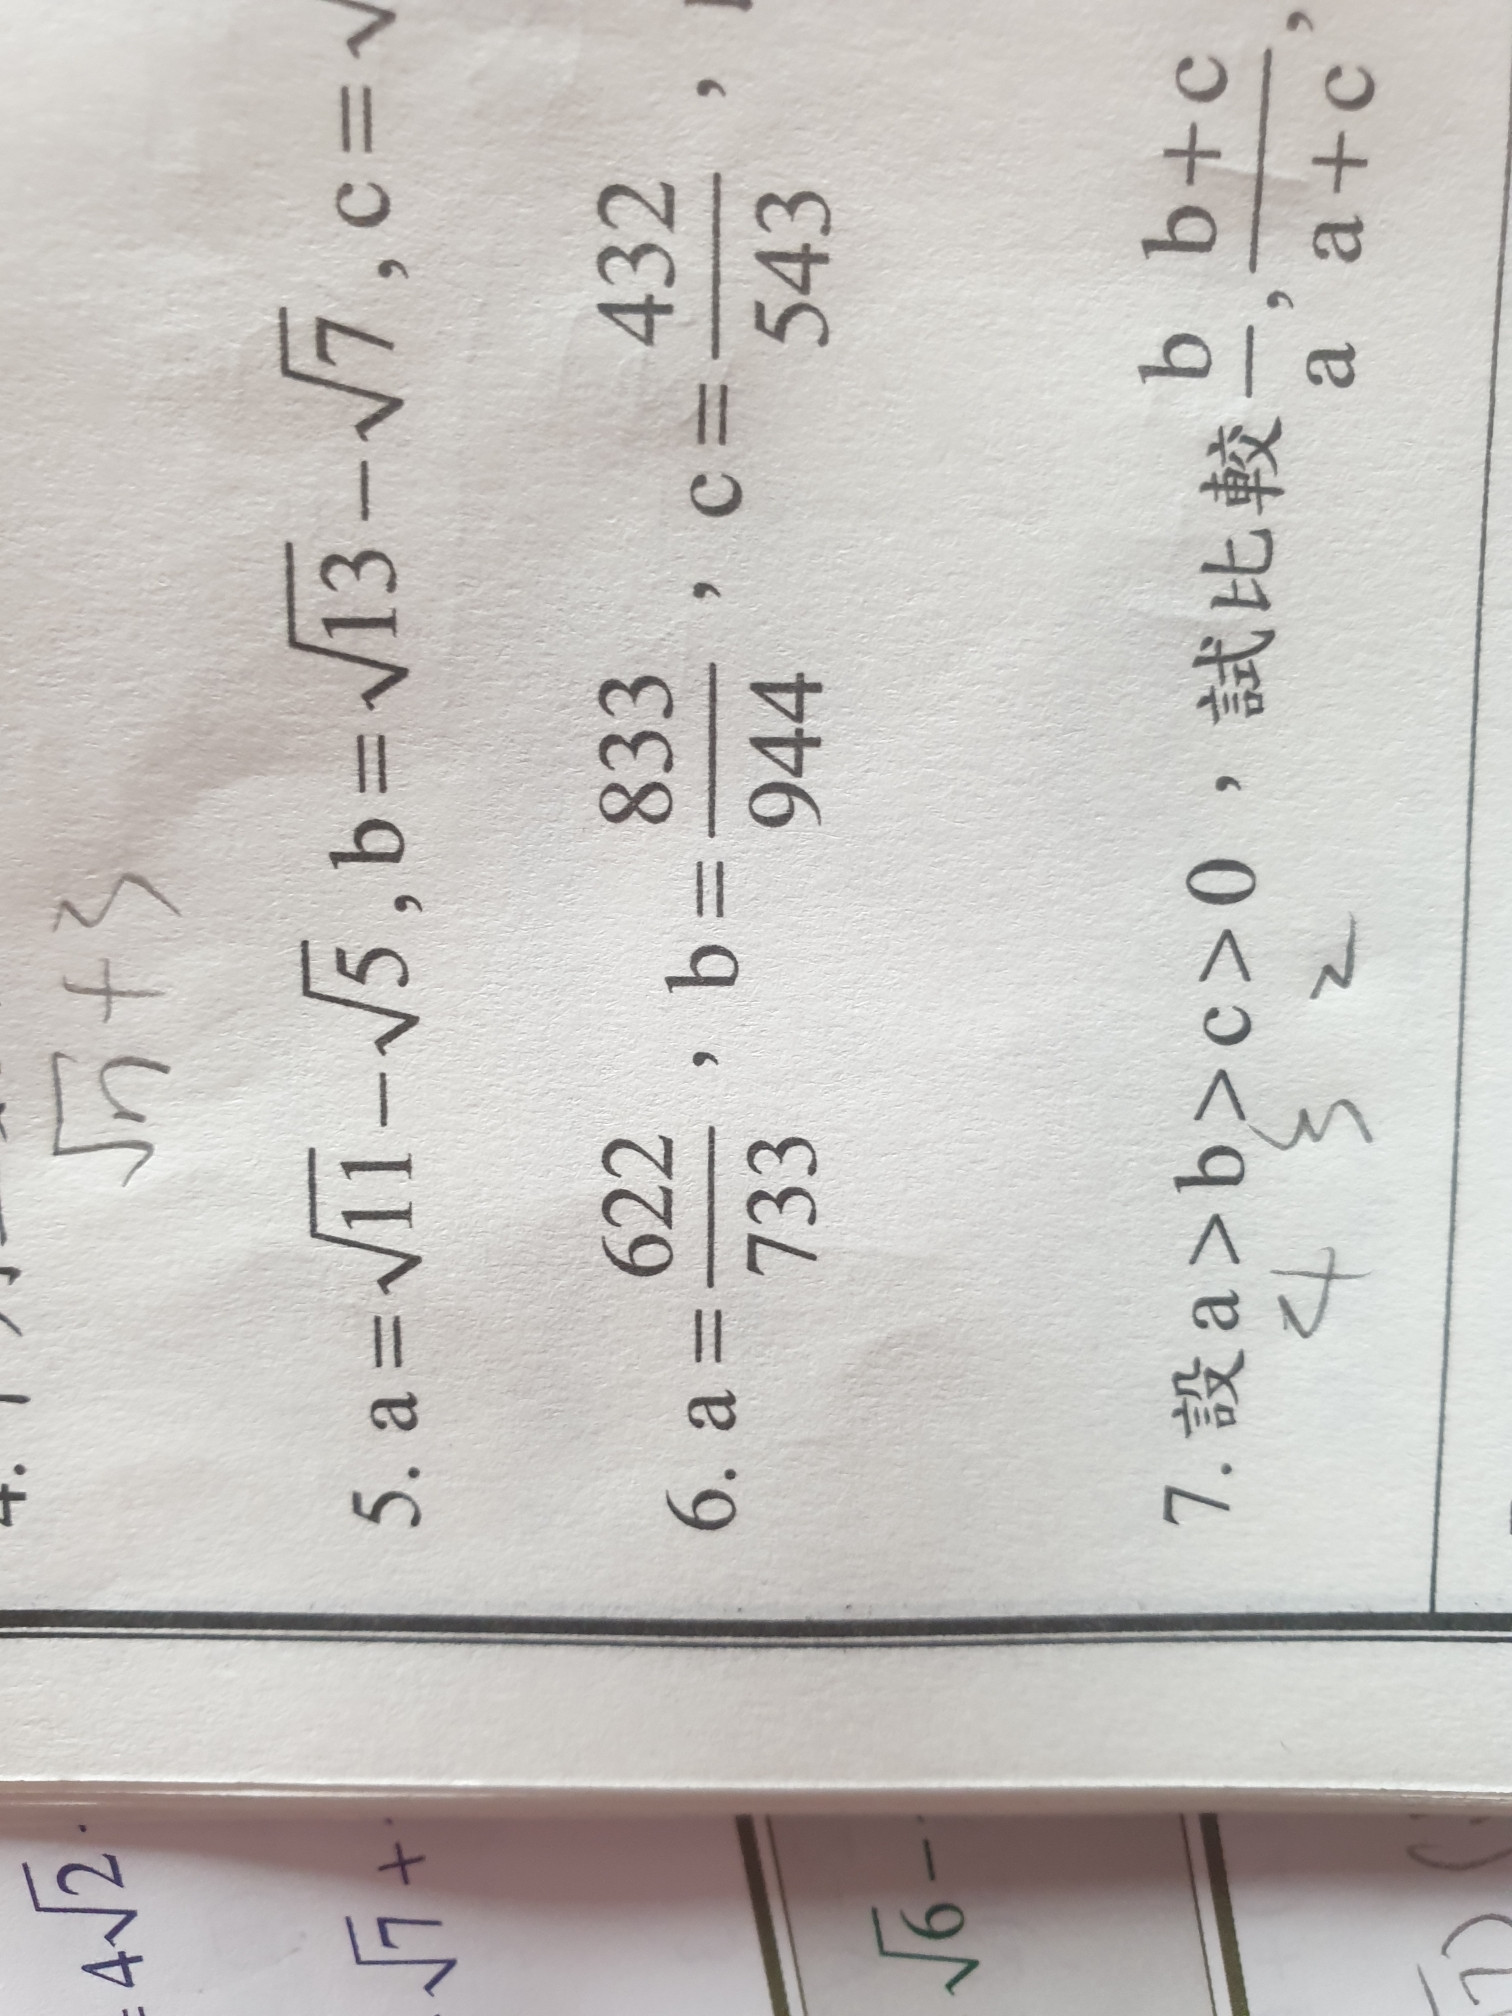 4.
√n + 3
5. a=√11−√5, b=√13−√7, c=√
6. a=622/733 , b=833/944 , c=432/543 ,
7. 設a>b>c>0 , 試比較 b/a, (b+c)/(a+c),
4 3 2
=4√2
√7+
√6−